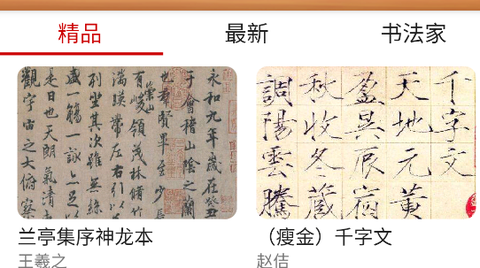 精品
最新
书法家
永和九年歲在癸丑
于會稽山陰之蘭
也羣賢畢至少
有崇山峻領茂林脩竹
湍暎帶左右引以
列坐其次雖無絲
盛一觴一詠亦足以
是日也天朗氣清
觀宇宙之大俯察
千字文
天地元黄
盈昃辰宿
秋收冬藏
調陽雲騰
兰亭集序神龙本
王羲之
（瘦金）千字文
赵佶